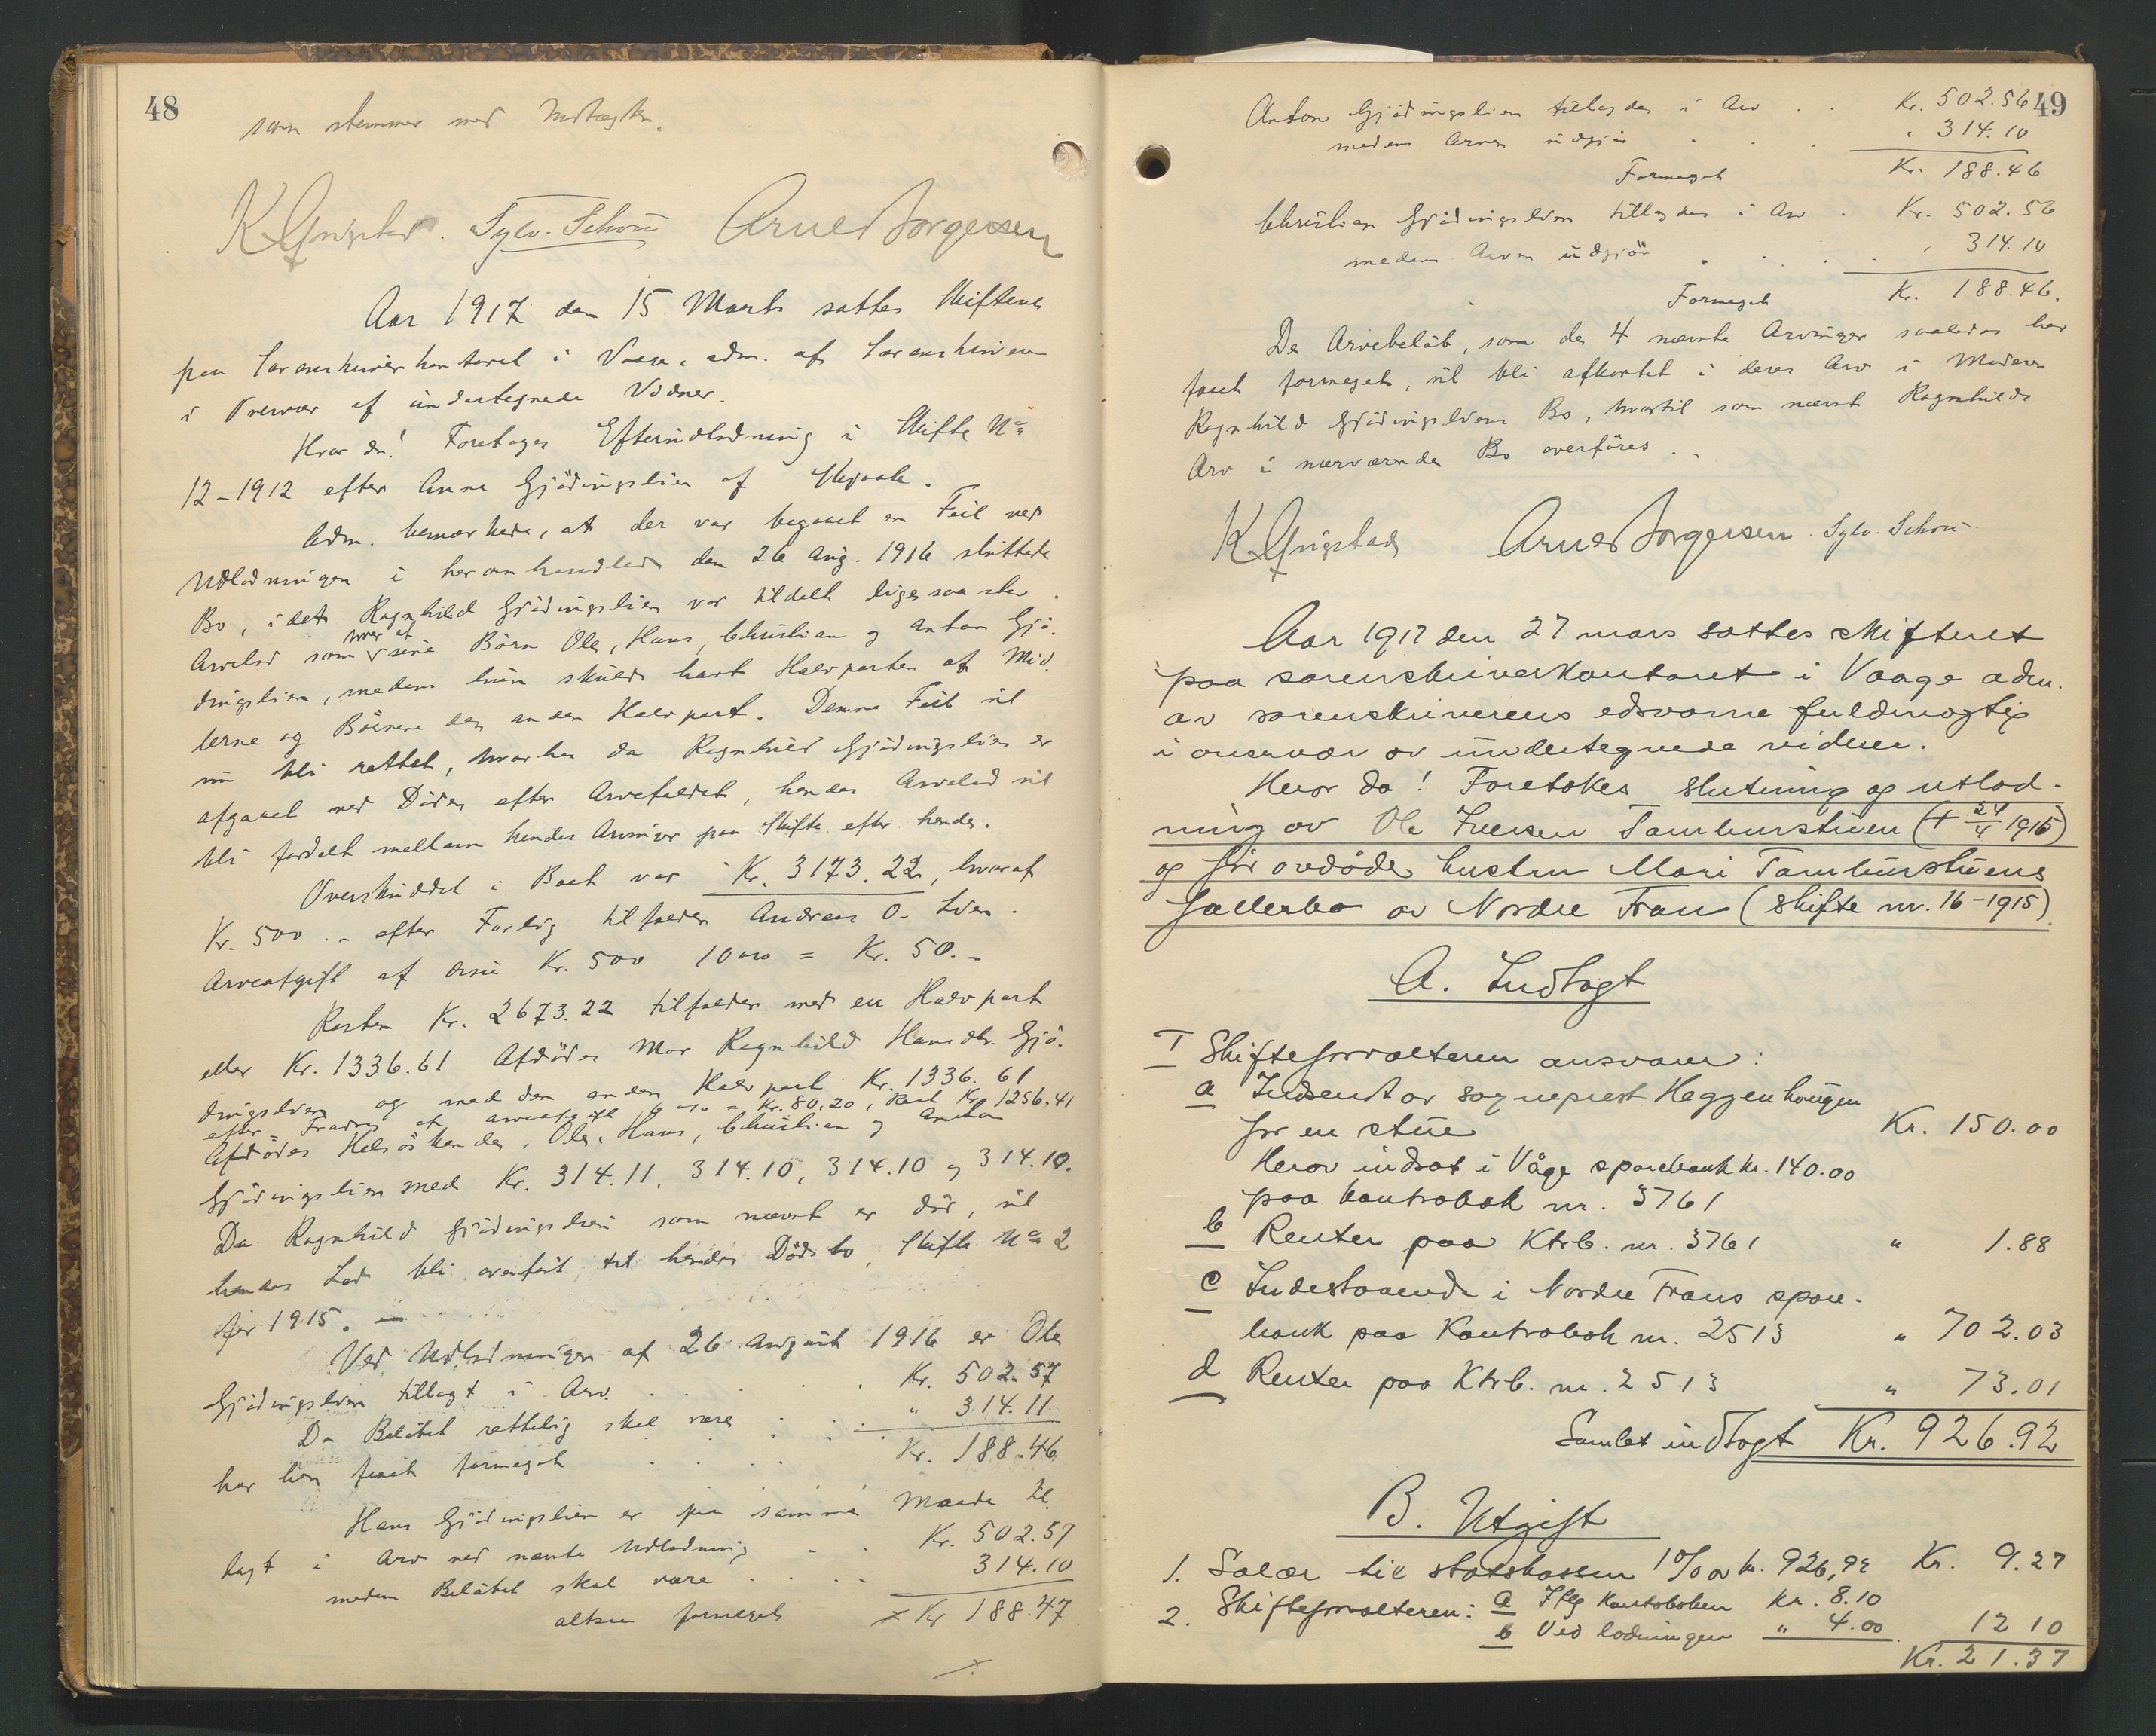 48
som stemmer med Indtægten.
K Gjngstad. Sylv. Schou Arne Jorgensen
Aar 1917 den 15 Marts sattes Skifteret
paa Sorenskriverkontoret i Vaage, adm. af Sorenskriveren
i Overvær af undertegnede Vidner.
Hvor da! Foretoges Efterudlodning i Skifte No
12-1912 efter Anna Gjödingslien af Skjaak.
Adm. bemærkede, at der var begaaet en Feil ved
Udlodningen i heromhandlede den 26 Aug. 1916 sluttede
Bo, idet Ragnhild Gjödingslien var tildelt ligesaa stor
Arvelod som hver af sine Börn Ole, Hans, Christian og Anton Gjö-
dingslien, medens hun skulde havt Halvparten af Mid-
lerne og Börnene den anden Halvpart. Denne Feil vil
nu bli rettet, hvorhos da Ragnhild Gjödingslien er
afgaaet ved Döden efter Arvefaldet, hendes Arvelod vil
bli fordelt mellem hendes Arvinger paa Skifte efter hende.
Overskuddet i Boet var Kr. 3173.22, hvoraf
Kr. 500.- efter Forlig tilfalder Andreas O. Lien.
Arveafgift af disse Kr. 500 10 % = Kr. 50.-
Resten Kr. 2673.22 tilfalder med en Halvpart
eller Kr. 1336.61 Afdödes Mor Ragnhild Hansdtr. Gjö-
dingslien og med den anden Halvpart Kr. 1336.61
efter Fradrag af arveafgift 6 % = Kr. 80.20, Rest Kr. 1256.41
Afdödes Helsöskende, Ole, Hans, Christian og Anton
Gjödingslien med Kr. 314.11, 314.10, 314.10 og 314.10.
Da Ragnhild Gjödingslien som nævnt er död, vil
hendes Lod bli overfört til hendes Dödsbo, Skifte No 2
for 1915.
Ved Udlodningen af 26 August 1916 er Ole
Gjödingslien tillagt i Arv . . . . Kr. 502.57
Da Belöbet rettelig skal være . . . " 314.11
har han faaet formeget . . . . Kr. 188.46
Hans Gjödingslien er paa samme Maade til-
lagt i Arv ved nævnte Udlodning . . Kr. 502.57
medens Belöbet skal være . . . . 314.10
altsaa formeget Kr 188.47
49
Anton Gjödingslien tillagdes i Arv . . Kr. 502.56
medens Arven udgjör . . . " 314.10
Formeget Kr. 188.46
Christian Gjödingslien tillagdes i Arv . Kr. 502.56
medens Arven udgjör . . . . " 314.10
Formeget Kr. 188.46.
De Arvebelöb, som de 4 nævnte Arvinger saaledes har
faaet formeget, vil bli afkortet i deres Arv i Moderen
Ragnhild Gjödingsliens Bo, hvortil som nævnt Ragnhilds
Arv i nærværende Bo overföres.
K Gjngstad Arne Jorgensen. Sylv. Schou.
Aar 1917 den 27 mars sattes skifteret
paa sorenskriverkontoret i Vaage adm.
av sorenskriverens edsvorne fuldmægtig
i overvær av undertegnede vidner.
Hvor da! Foretokes slutning og utlod-
ning av Ole Iversen Tamburstuen († 24/4 1915)
og för avdöde hustru Mari Tamburstuens
fællesbo av Nordre Fron (skifte nr. 16-1915).
A. Indtægt
I Skifteforvalteren ansvarer:
a Indsendt av sogneprest Heggenhougen
for en stue Kr. 150.00
Herav indsat i Våge sparebank kr. 140.00
paa kontrabok nr. 3761
b Renter paa Ktrb. nr. 3761 " 1.88
c Indestaaende i Nordre Frons spare-
bank paa Kontrabok nr. 2513 " 702.03
d Renter paa Ktrb. nr. 2513 " 73.01
Samlet indtægt Kr. 926.92
B. Utgift
1. Salær til statskassen 1% av kr. 926,92 Kr. 9.27
2. Skifteforvalteren: a Iflg Kontoboken kr. 8.10
b Ved lodningen " 4.00 12 10
Kr. 21.37